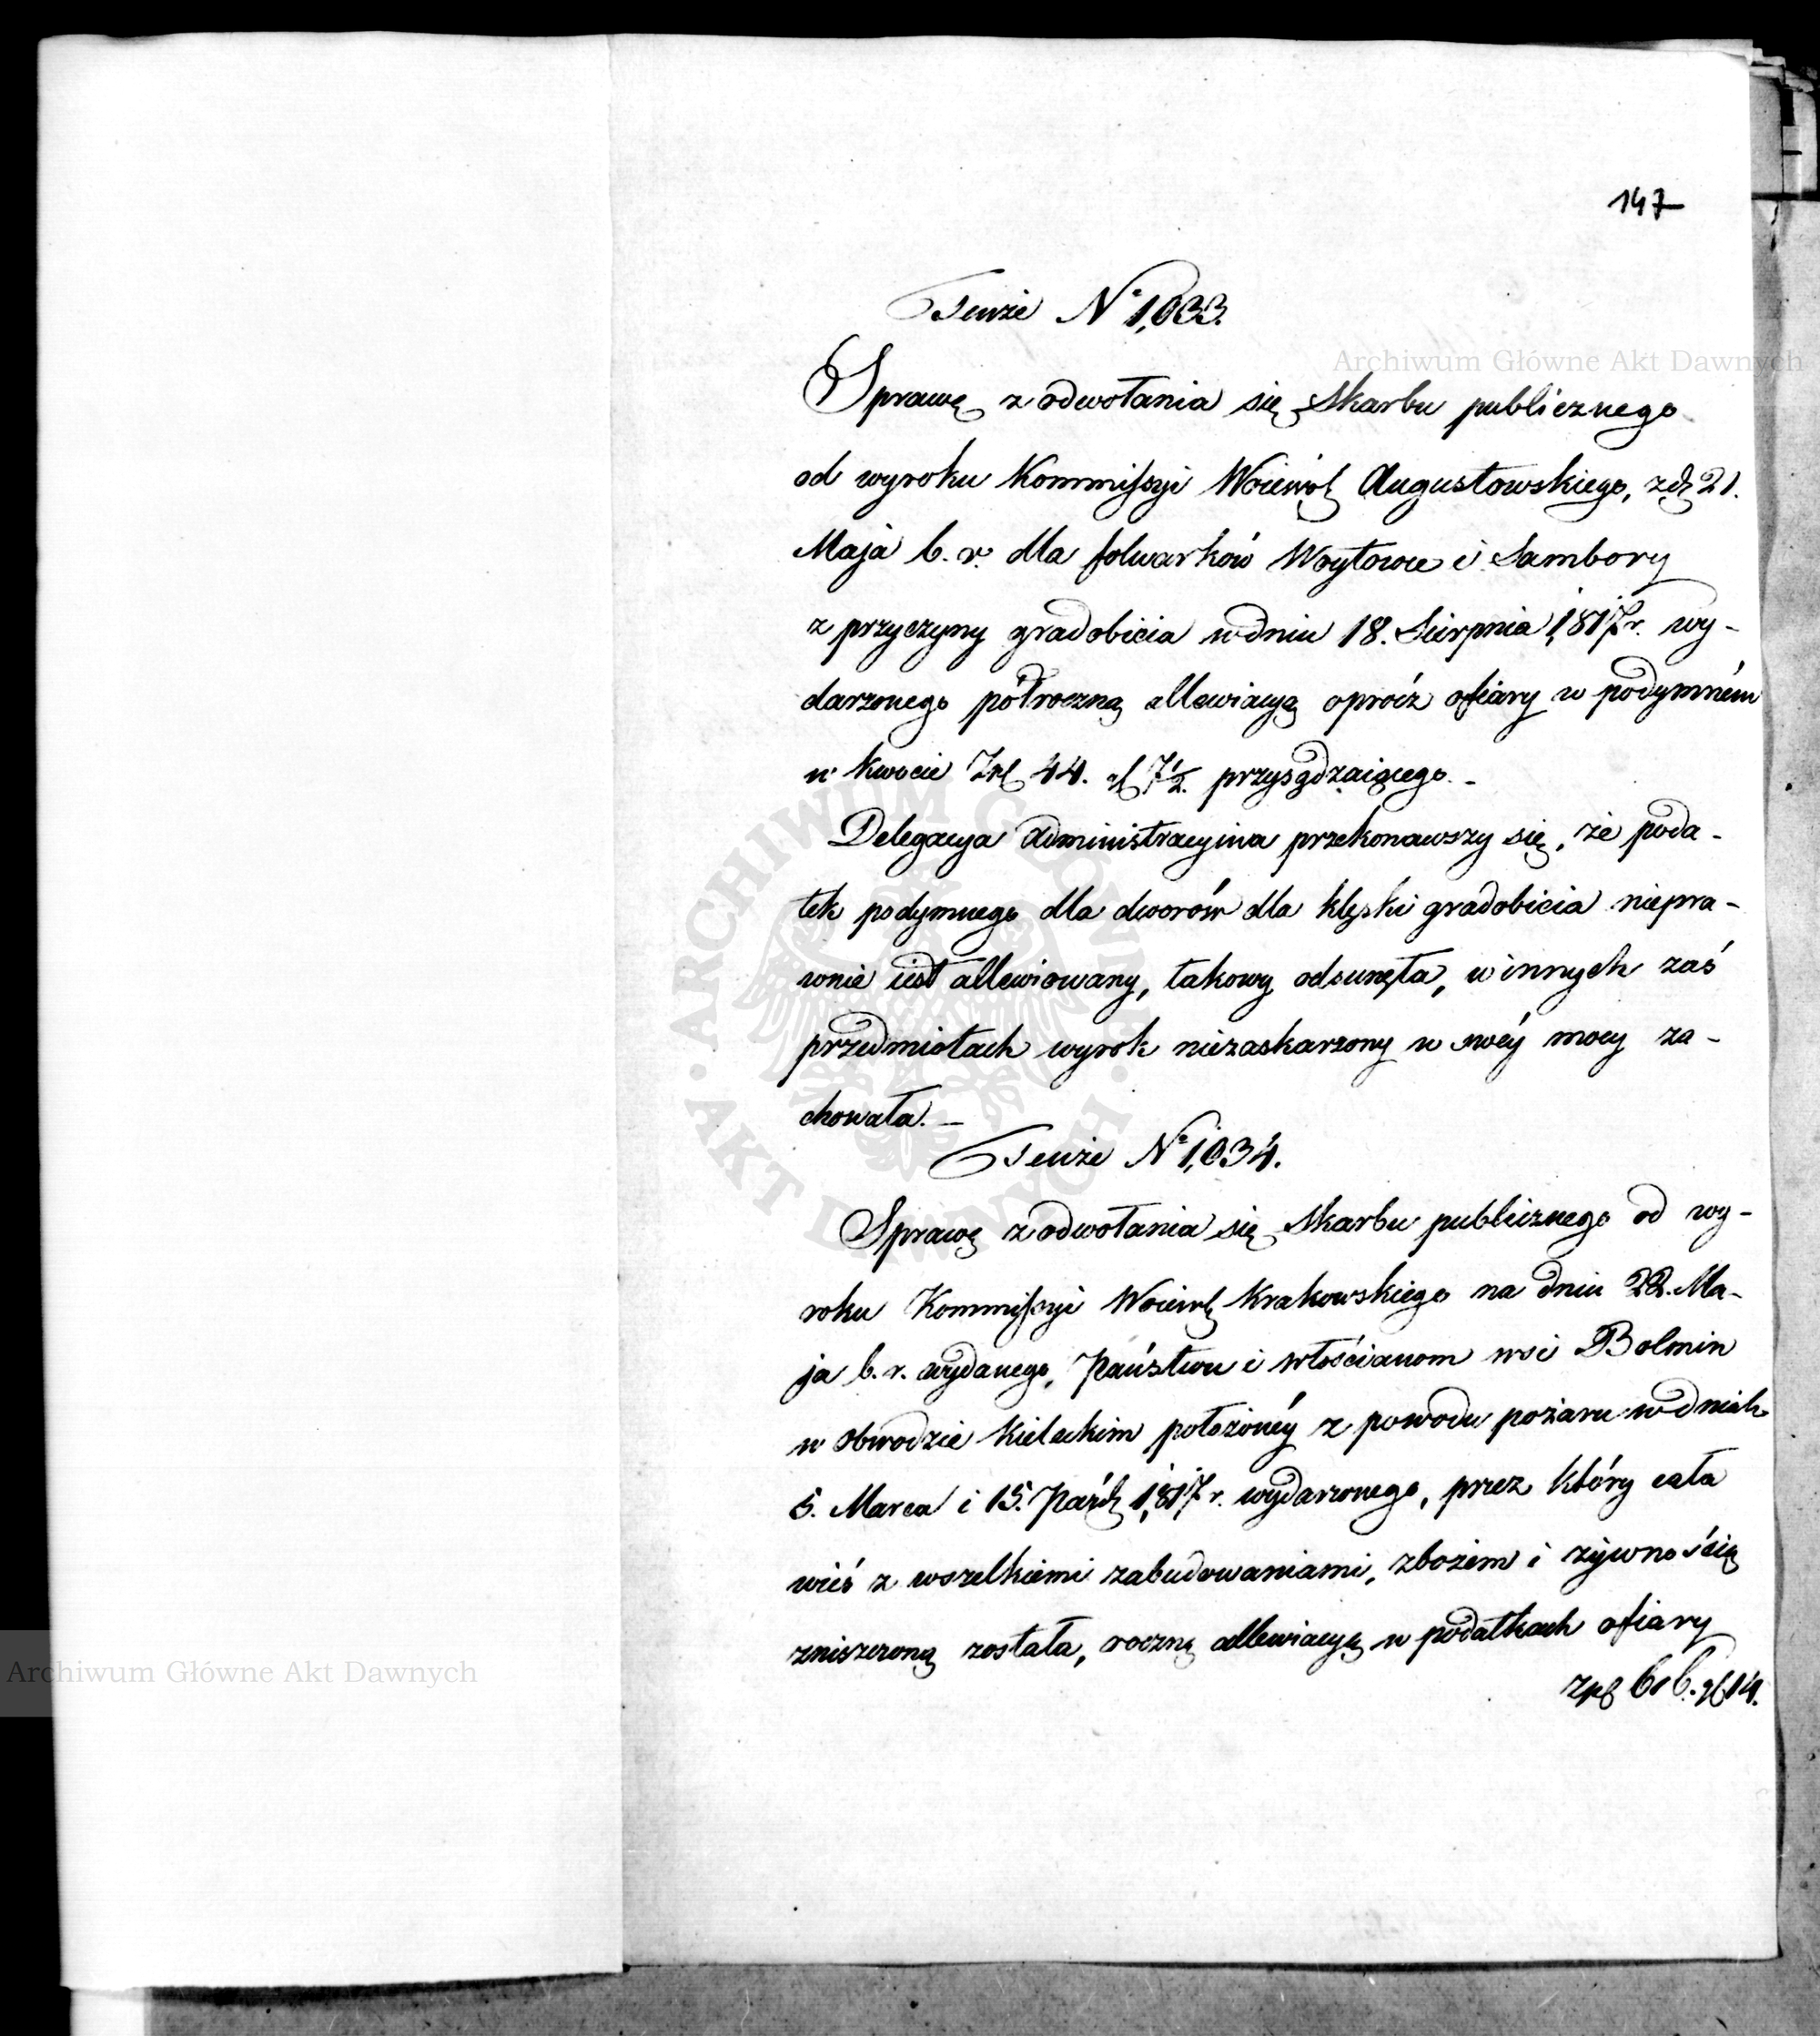 147
Tenże Nº 1,033.
Sprawę z odwołania się Skarbu publicznego
od wyroku Kommissyi Woiewó: Augustowskiego, z d: 21.
Maja b. r. dla folwarków Woytowce i Sambory
z przyczyny gradobicia w dniu 18. Sierpnia 1,817 r. wy-
darzonego półroczną allewiacyą oprócz ofiary w podymném
w kwocie Zpł 44. gr 7½. przysądzaiącego. -
Delegacya Administracyina przekonawszy się, że poda-
tek podymnego dla dworów dla klęski gradobicia niepra-
wnie iest allewiowany, takowy odsunęła, w innych zaś
przedmiotach wyrok niezaskarzony w swéy mocy za-
chowała. -
Tenże Nº 1,034.
Sprawę z odwołania się Skarbu publicznego od wy-
roku Kommissyi Woiewó: Krakowskiego na dniu 22. Ma-
ja b. r. wydanego, Państwu i włościanom wsi Bolmin
w obwodzie Kieleckim położonéy z powodu pożaru w dniach
5. Marca i 15. Paźdz: 1,817 r. wydarzonego, przez który cała
wieś z wszelkiemi zabudowaniami, zbożem i żywnością
zniszczoną została, roczną allewiacyą w podatkach ofiary
zpł 616. gr 14.
Archiwum Główne Akt Dawnych
Archiwum Główne Akt Dawnych
ARCHIWUM GŁÓWNE AKT DAWNYCH